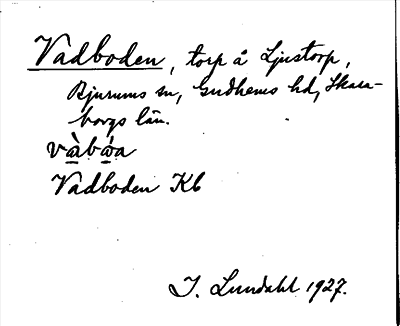 Vadboden, torp å Ljustorp,
Bjurums sn, Gudhems hd, Skara-
borgs län.
vàbóa
Vadboden Kb
I. Lundahl 1927.